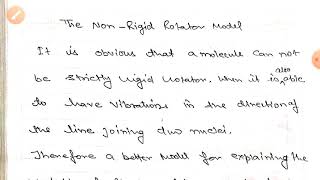 The Non-Rigid Rotator Model
It is obvious that a molecule can not
be strictly rigid rotator. When it is also able
to have vibrations in the direction of
the line joining two nuclei.
Therefore a better model for explaining the